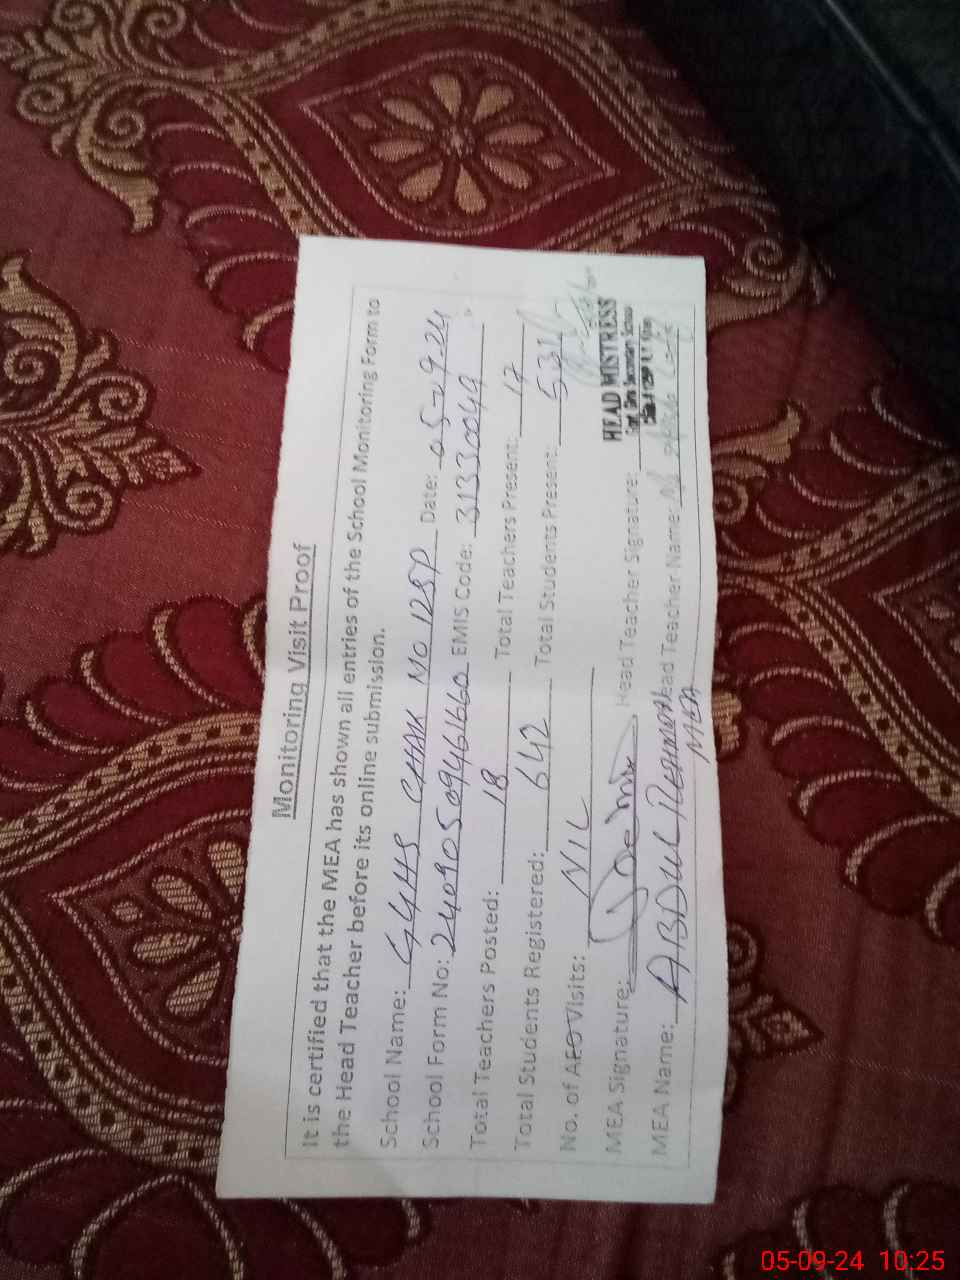 Monitoring Visit Proof
It is certified that the MEA has shown all entries of the School Monitoring Form to
the Head Teacher before its online submission.
School Name: GGHS CHAK NO 12SP Date: 05-09-24
School Form No: 24090509461660 EMIS Code: 31330049
Total Teachers Posted: 18 Total Teachers Present: 17
Total Students Registered: 642 Total Students Present: 531
No. of AEO Visits: NIL
MEA Signature: Head Teacher Signature:
HEAD MISTRESS
MEA Name: ABDUL REHMAN Head Teacher Name:
MEA
05-09-24 10:25